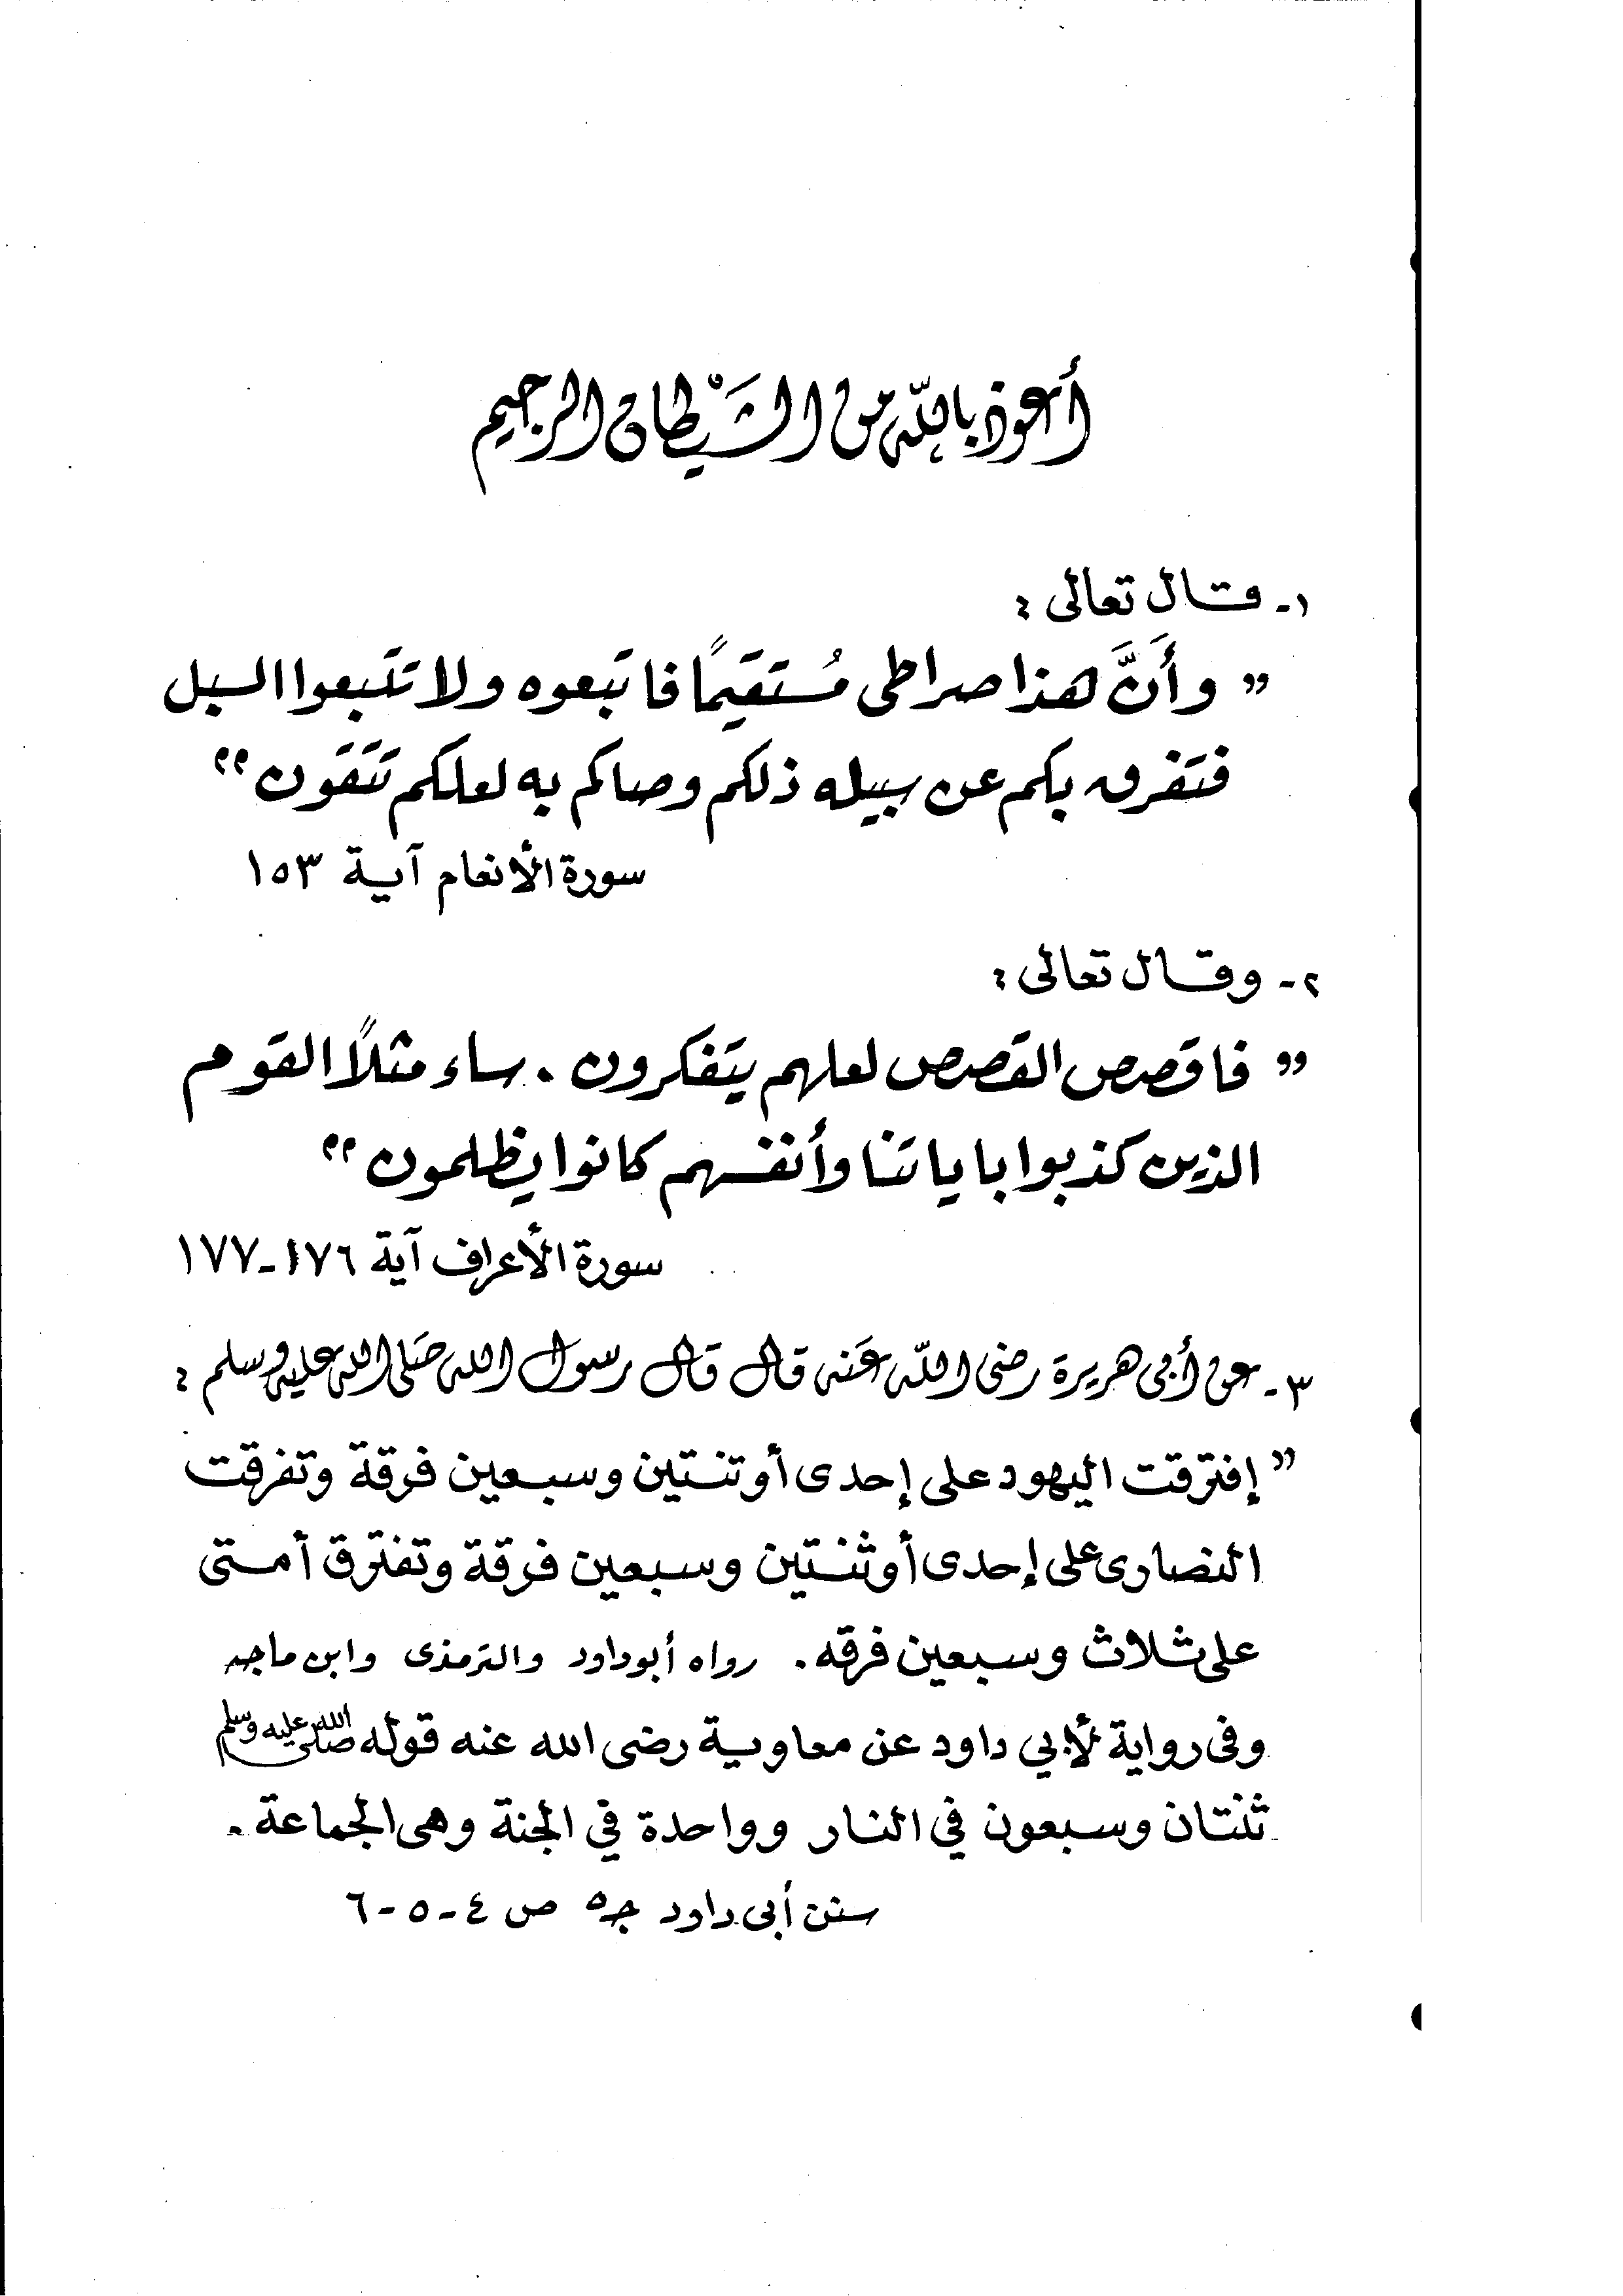 أعوذ بالله من الشيطان الرجيم
١- قال تعالى :
" وأنَّ هذا صراطى مُستقيمًا فاتبعوه ولا تتبعوا السبل
فتفرق بكم عن سبيله ذلكم وصاكم به لعلكم تتقون "
سورة الأنعام آية ١٥٣
٢- وقال تعالى :
" فاقصص القصص لعلهم يتفكرون . ساء مثلاً القوم
الذين كذبوا باياتنا وأنفسهم كانوا يظلمون "
سورة الأعراف آية ١٧٦-١٧٧
٣- عن أبى هريرة رضى اللّه عَنه قال قال رسول الله صَلى الله عليه وسلم :
" إفترقت اليهود على إحدى أو تنتين وسبعين فرقة وتفرقت
النصارى على إحدى أو ثنتين وسبعين فرقة وتفترق أمتى
على ثلاث وسبعين فرقه . رواه أبوداود والترمذى وابن ماجه
وفى رواية لأبي داود عن معاوية رضى الله عنه قوله صلى الله عليه وسلم
ثنتان وسبعون في النار وواحدة في الجنة وهى الجماعة .
سنن أبى داود جـ٥ ص ٤-٥-٦